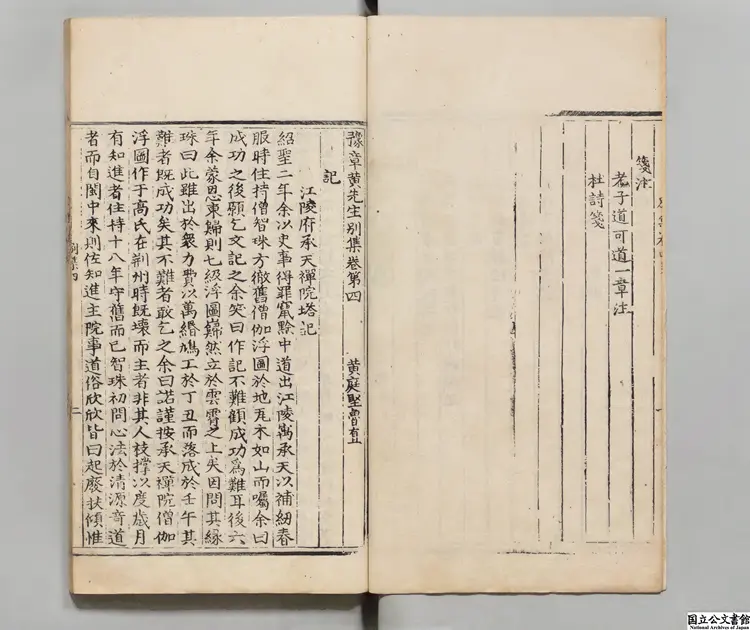 箋注
老子道可道一章注
杜詩箋
豫章黃先生別集卷第四
黃庭堅魯直
記
江陵府承天禪院塔記
紹聖二年余以史事得罪竄黔中道出江陵寓承天以補紉春
服時住持僧智珠方徹舊僧伽浮圖於地瓦木如山而囑余曰
成功之後願乞文記之余笑曰作記不難顧成功為難耳後六
年余蒙恩東歸則七級浮圖巋然立於雲霄之上矣因問其緣
珠曰此雖出於衆力費以萬緡鳩工於丁丑而落成於壬午其
難者既成功矣其不難者敢乞之余曰諾謹按承天禪院僧伽
浮圖作于高氏在荆州時既壞而主者非其人枝撑以度歲月
有知進者住持十八年守舊而已智珠初問心法於清源奇道
者而自閩中來則佐知進主院事道俗欣欣皆曰起廢扶傾惟
別集四
二
国立公文書館
National Archives of Japan